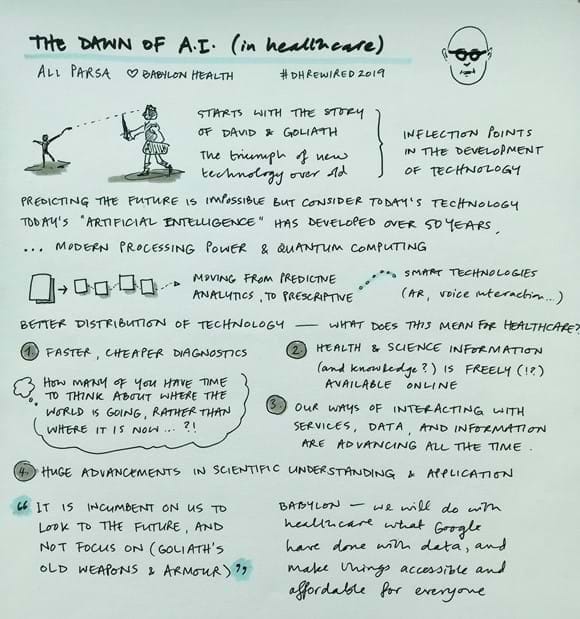 THE DAWN OF A.I. (in healthcare)
ALI PARSA ♡ BABYLON HEALTH #DHREWIRED2019
STARTS WITH THE STORY
OF DAVID & GOLIATH
The triumph of new
technology over old
INFLECTION POINTS
IN THE DEVELOPMENT
OF TECHNOLOGY
PREDICTING THE FUTURE IS IMPOSSIBLE BUT CONSIDER TODAY'S TECHNOLOGY
TODAY'S "ARTIFICIAL INTELLIGENCE" HAS DEVELOPED OVER 50 YEARS,
... MODERN PROCESSING POWER & QUANTUM COMPUTING
MOVING FROM PREDICTIVE
ANALYTICS, TO PRESCRIPTIVE
SMART TECHNOLOGIES
(AR, voice interaction...)
BETTER DISTRIBUTION OF TECHNOLOGY — WHAT DOES THIS MEAN FOR HEALTHCARE?
1. FASTER, CHEAPER DIAGNOSTICS
HOW MANY OF YOU HAVE TIME
TO THINK ABOUT WHERE THE
WORLD IS GOING, RATHER THAN
WHERE IT IS NOW... ?!
2. HEALTH & SCIENCE INFORMATION
(and knowledge?) IS FREELY (!?)
AVAILABLE ONLINE
3. OUR WAYS OF INTERACTING WITH
SERVICES, DATA, AND INFORMATION
ARE ADVANCING ALL THE TIME.
4. HUGE ADVANCEMENTS IN SCIENTIFIC UNDERSTANDING & APPLICATION
"IT IS INCUMBENT ON US TO
LOOK TO THE FUTURE, AND
NOT FOCUS ON (GOLIATH'S
OLD WEAPONS & ARMOUR)"
BABYLON — we will do with
healthcare what Google
have done with data, and
make things accessible and
affordable for everyone